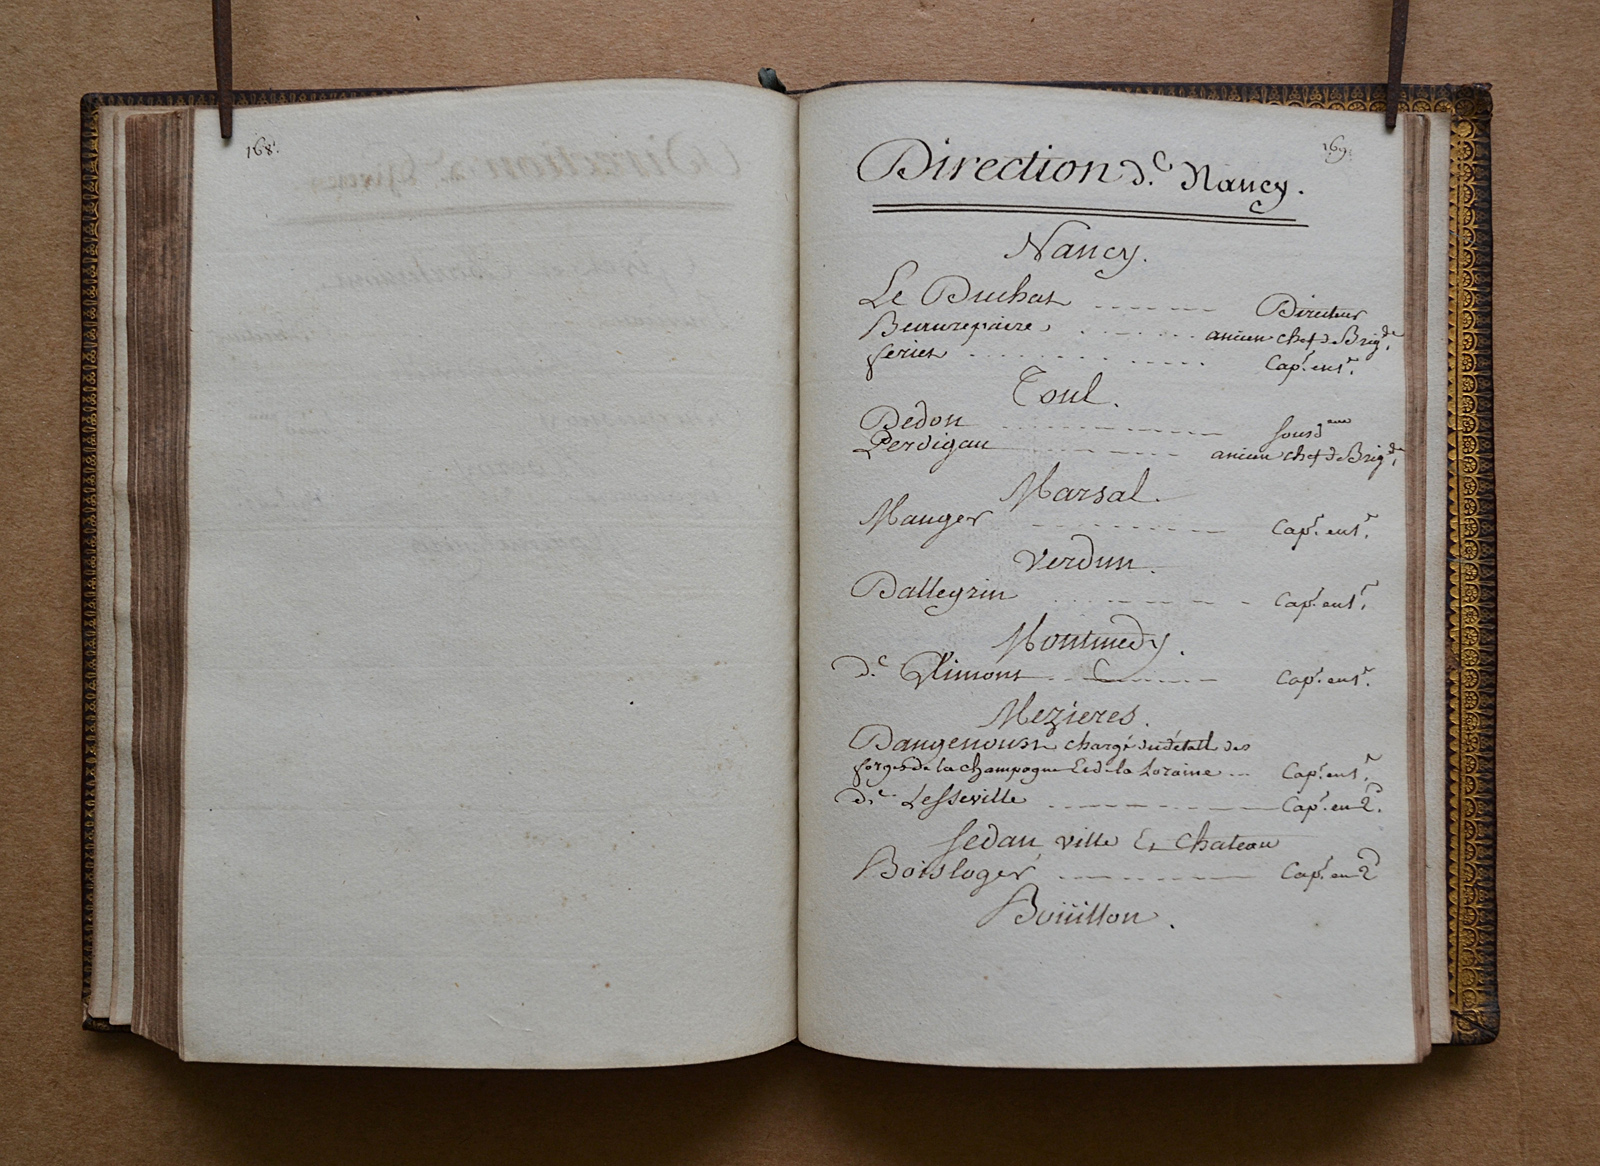 168.
169.
Direction d.e Nancy.
Nancy.
Le Duchat Directeur
Beaurepaire ancien chef de Brig.de
feriet Cap.e en 1.r
Toul.
Dedon
Perdigau ancien chef de Brig.de
Marsal.
Mauger Cap.e en 1.r
Verdun.
Dallegrin Cap.e en 1.r
Montmedy.
d.e Cap.e en 1.r
Mezieres.
chargé du détail des
forges de la champagne Et de la Loraine Cap.e en 1.r
de Lesseville Cap.e en 2.d
sedan, ville Et Chateau
Boisloger Cap.e en 2.d
Boüillon.